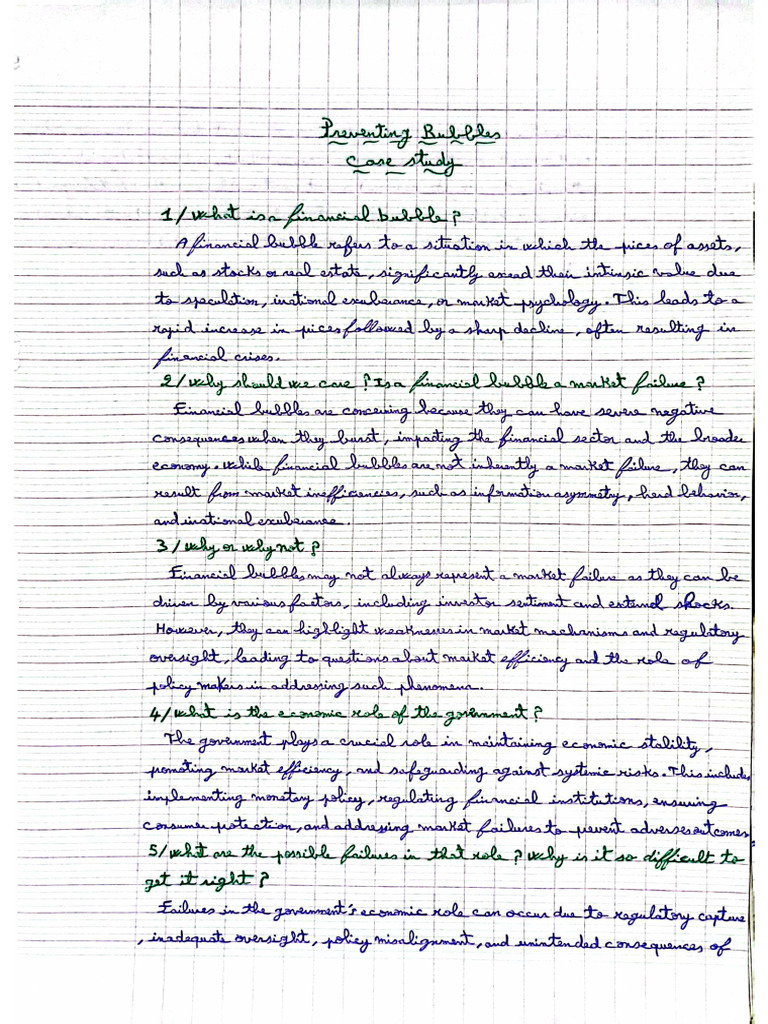 Preventing Bubbles
Case study
1/ What is a financial bubble?
A financial bubble refers to a situation in which the pices of assets,
such as stocks or real estate, significantly exeed their intrinsic value due
to speculation, irrational exuberance, or market psychology. This leads to a
rapid increase in pices followed by a sharp decline, often resulting in
financial crises.
2/ Why should we care? Is a financial bubble a market failure?
Financial bubbles are concerning because they can have severe negative
consequences when they burst, impacting the financial sector and the broader
economy. While financial bubbles are not inherently a market failure, they can
result from market inefficiencies, such as information asymmetry, herd behavior,
and irrational exuberance.
3/ Why or why not?
Financial bubbles may not always represent a market failure as they can be
driven by various factors, including investor sentiment and external shocks.
However, they can highlight weaknesses in market mechanisms and regulatory
oversight, leading to questions about market efficiency and the role of
policy makers in addressing such phenomena.
4/ What is the economic role of the government?
The government plays a crucial role in maintaining economic stability,
promoting market efficiency, and safeguarding against systemic risks. This includes
implementing monetary policy, regulating financial institutions, ensuring
consumer protection, and addressing market failures to prevent adverse outcomes.
5/ What are the possible failures in that role? Why is it so difficult to
get it right?
Failures in the government's economic role can occur due to regulatory capture
, inadequate oversight, policy misalignment, and unintended consequences of